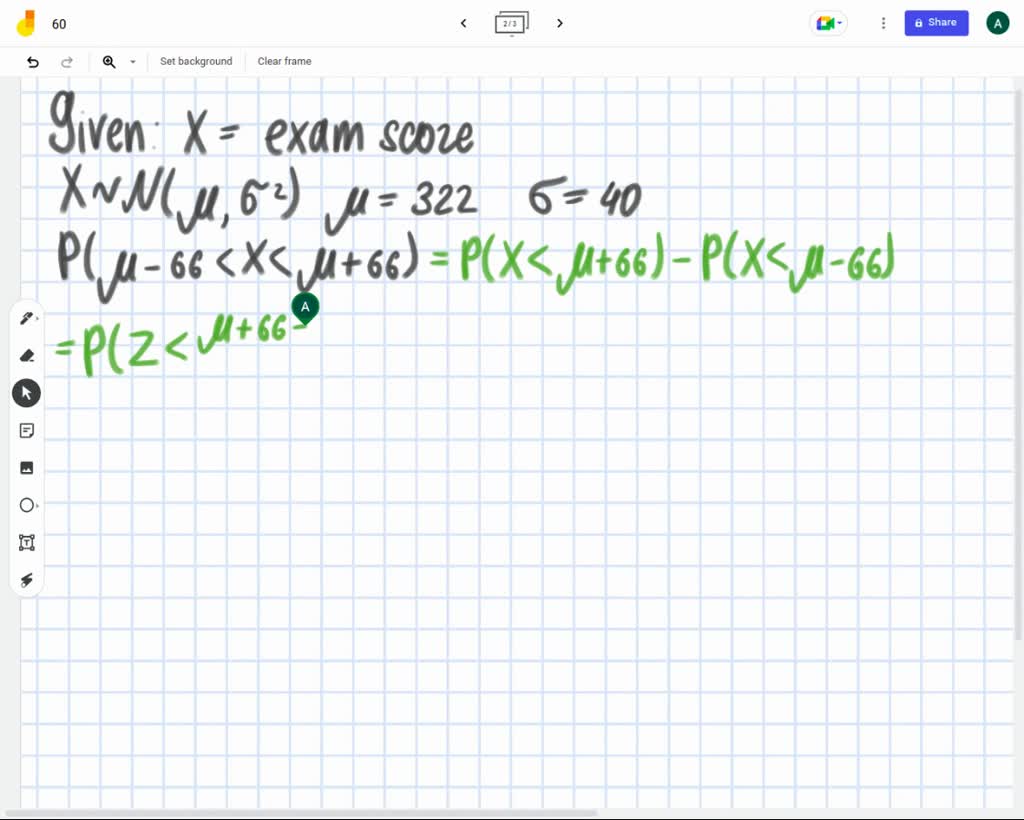 60
2/3
Share
A
Set background
Clear frame
Given: X = exam score
X~N(μ, σ²) μ = 322 σ = 40
P(μ - 66 < X < μ + 66) = P(X < μ+66) - P(X < μ - 66)
A
= P(Z < μ + 66 -
T